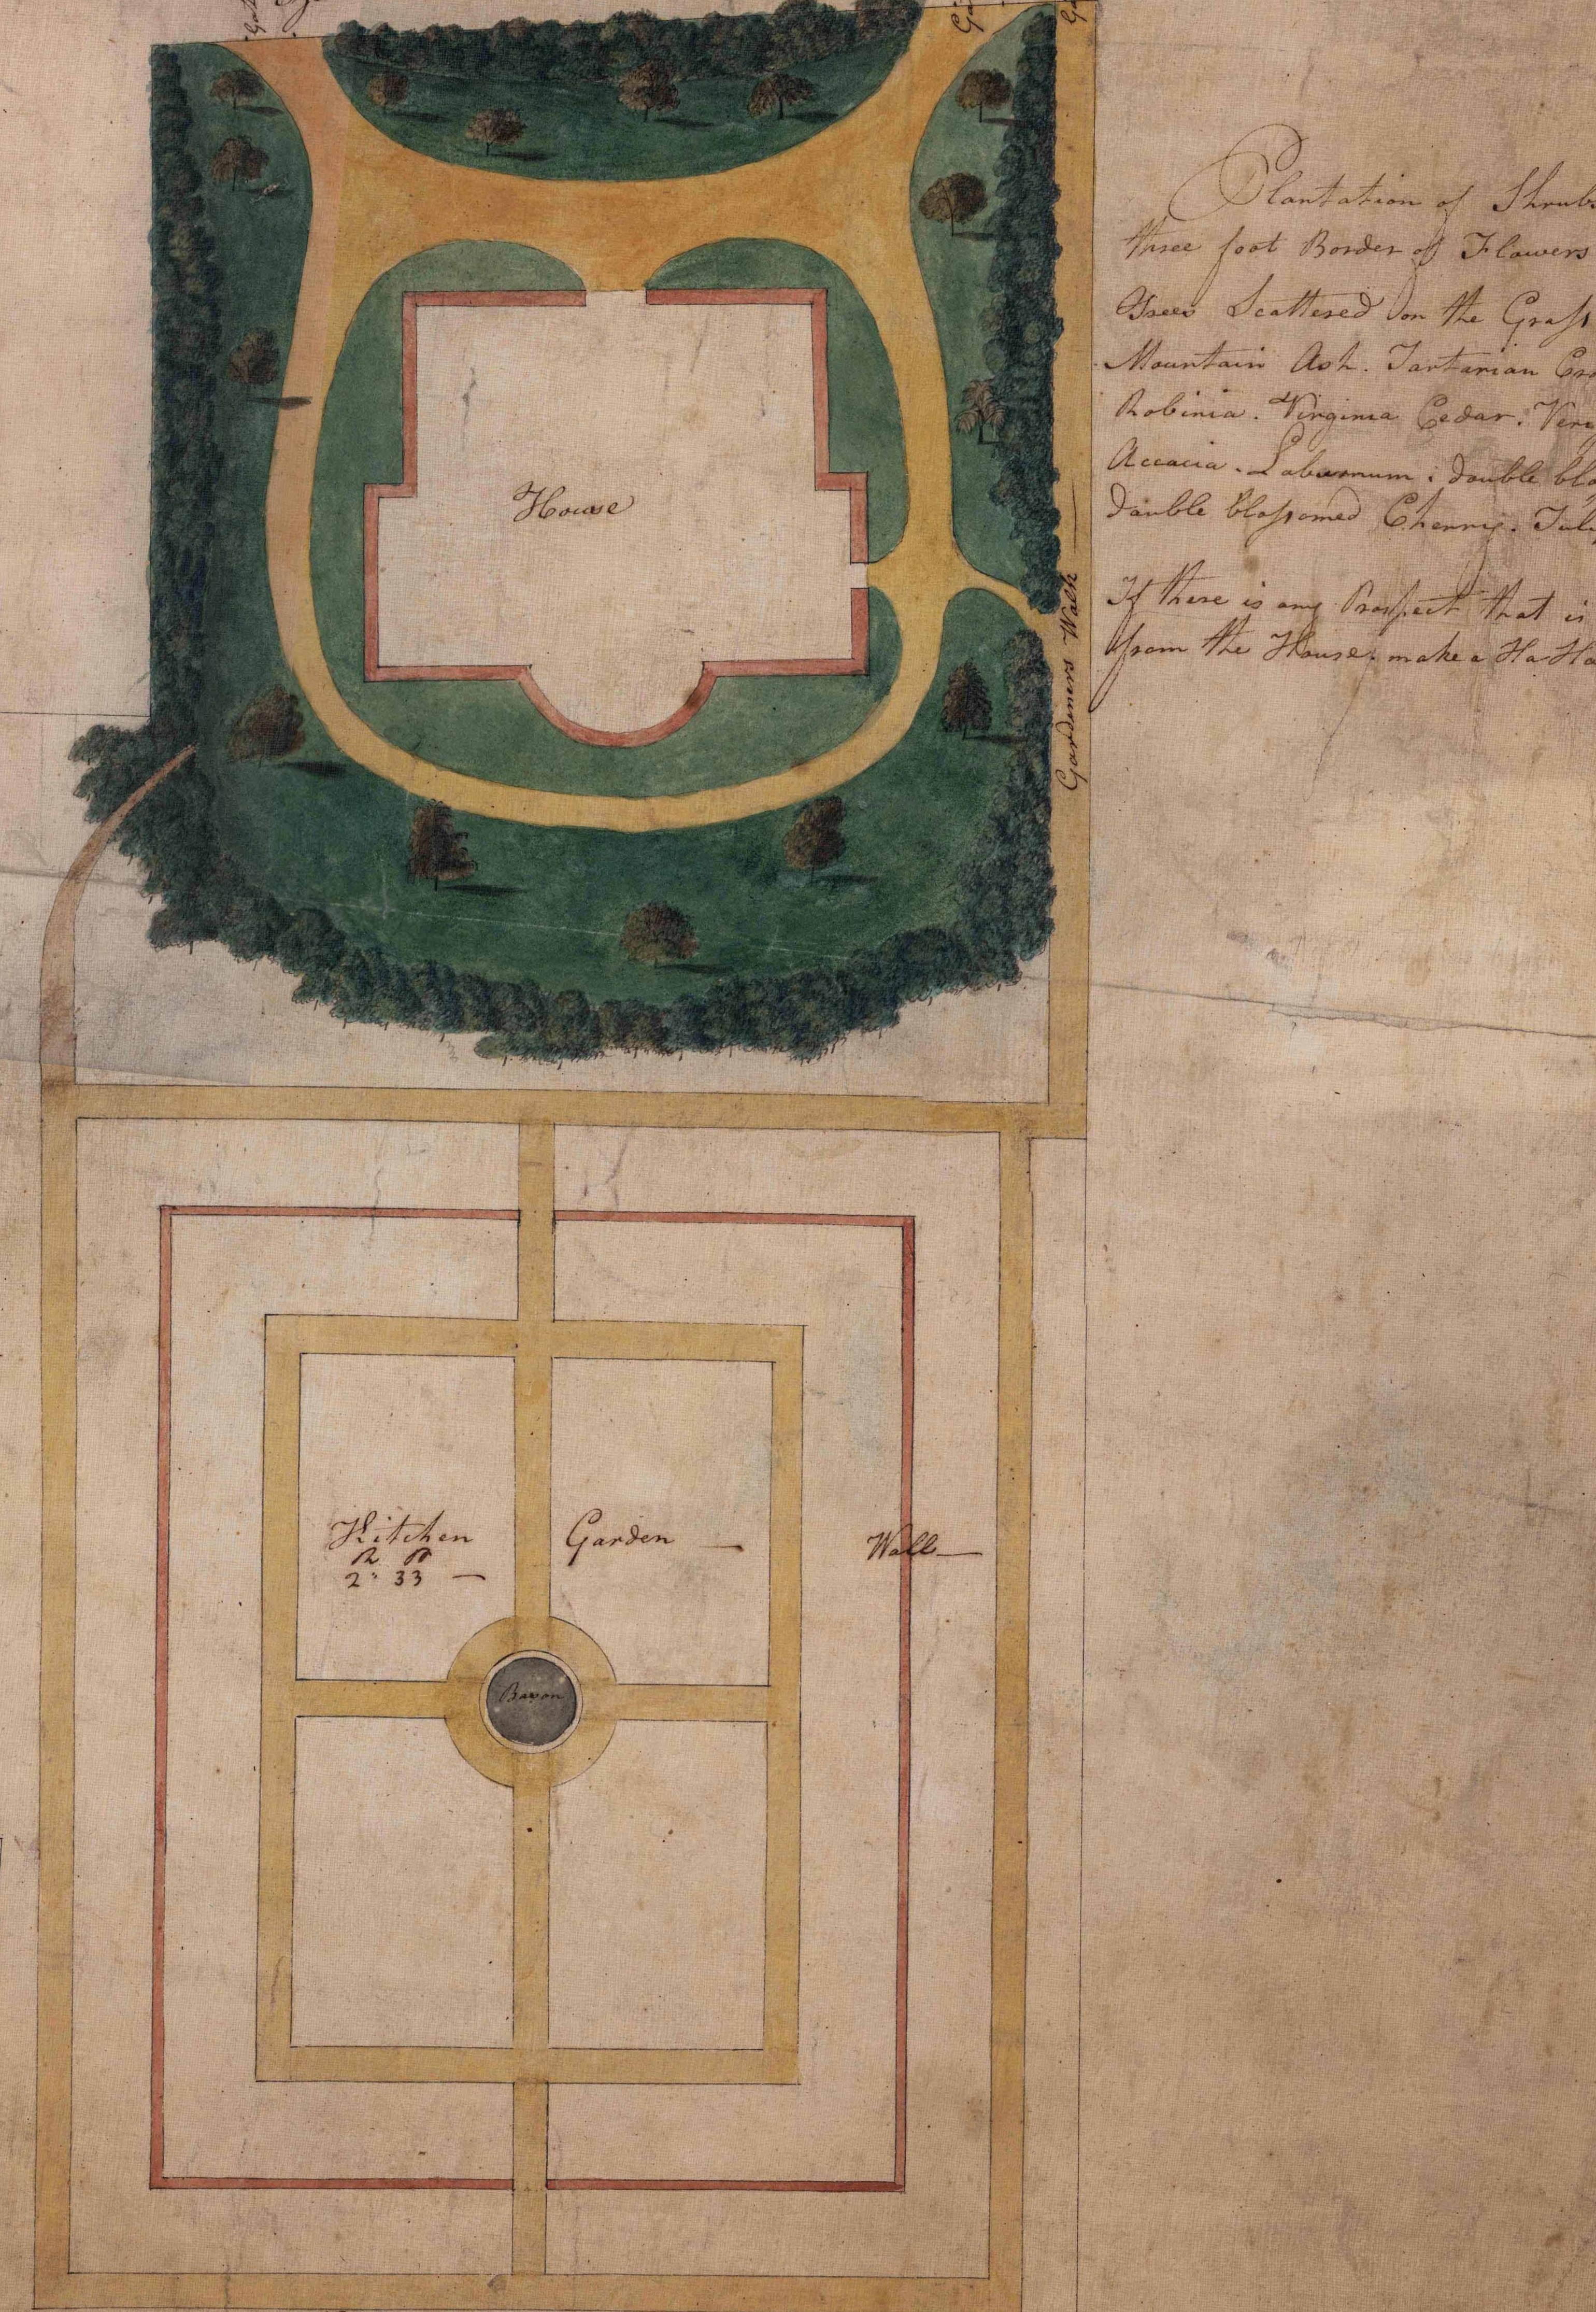 Plantation of Shrubs
three foot Border of Flowers
Trees Scattered on the Grass
Mountain Ash. Tartarian
Robinia. Virginia Cedar.
Accacia. Laburnum: double
double blossomed Cherry.
If there is any Prospect that is
from the House, make a Ha Ha
House
Gardeners Walk
Kitchen Garden
R P
2: 33
Wall
Bason